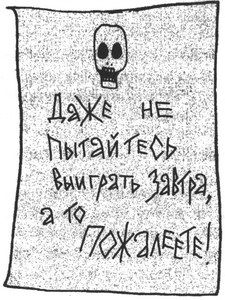 Даже не
пытайтесь
выиграть завтра,
а то
пожалеете!